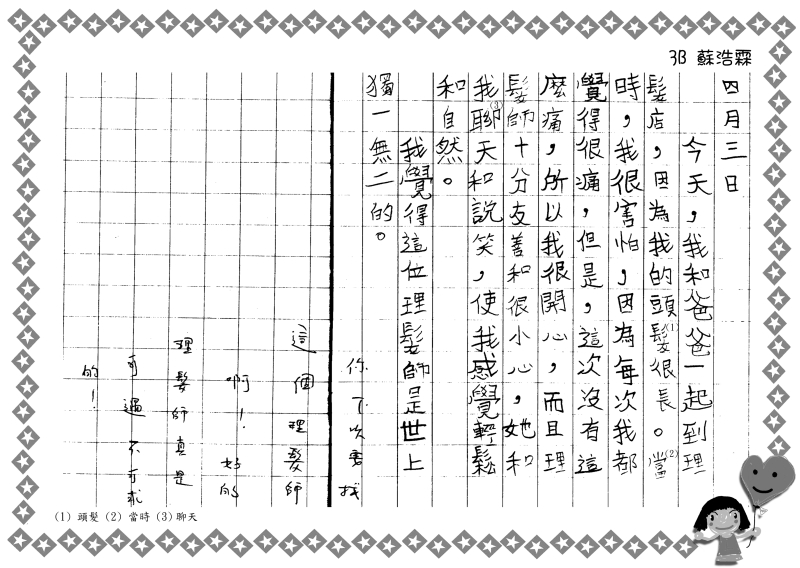 3B 蘇浩霖
四月三日
今天，我和爸爸一起到理
髮店，因為我的頭髮(1)很長。當(2)
時，我很害怕，因為每次我都
覺得很痛，但是，這次沒有這
麼痛，所以我很開心，而且理
髮師十分友善和很小心，她和
我聊(3)天和說笑，使我感覺輕鬆
和自然。
我覺得這位理髮師是世上
獨一無二的。
你可以找
這個理髮師
啊！好的
理髮師真是
可遇不可求
的！
(1) 頭髮 (2) 當時 (3) 聊天